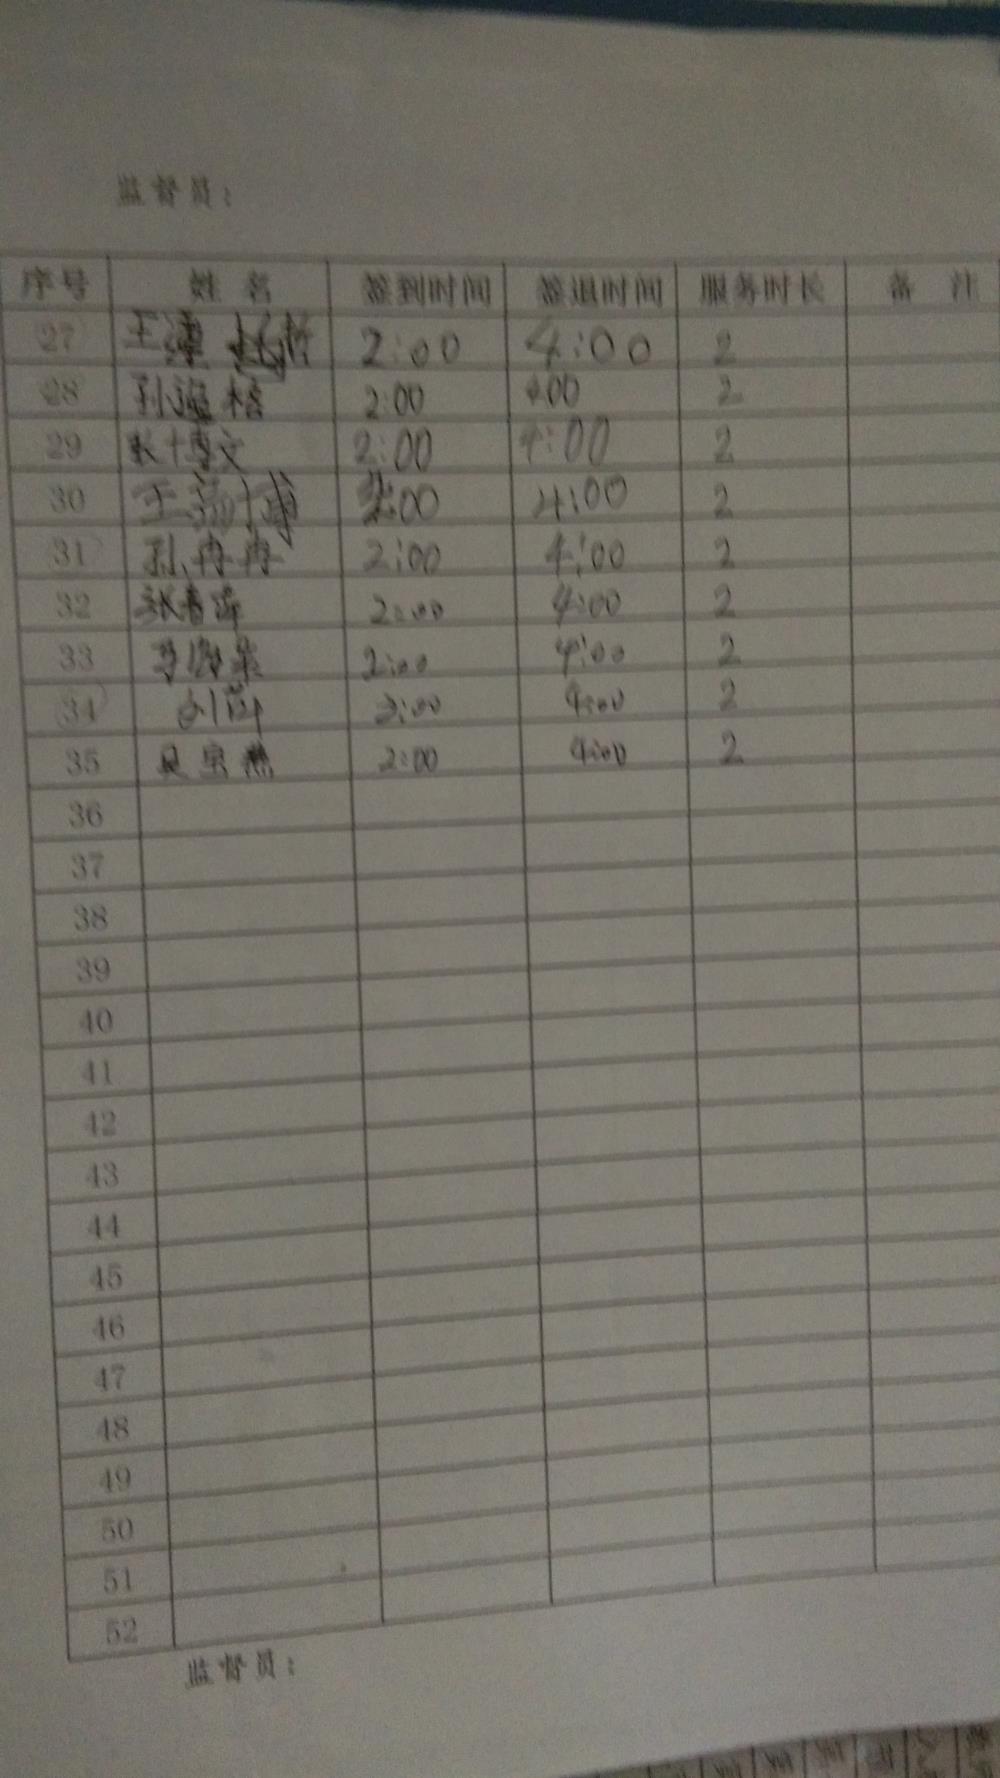 监督员：
序号 姓名 签到时间 签退时间 服务时长 备注
27 王 2:00 4:00 2
28 孙 2:00 4:00 2
29 张博文 2:00 4:00 2
30 王 博 2:00 4:00 2
31 孙冉冉 2:00 4:00 2
32 张春 2:00 4:00 2
33 2:00 4:00 2
34 刘 2:00 4:00 2
35 吴宝燕 2:00 4:00 2
36
37
38
39
40
41
42
43
44
45
46
47
48
49
50
51
52
监督员：